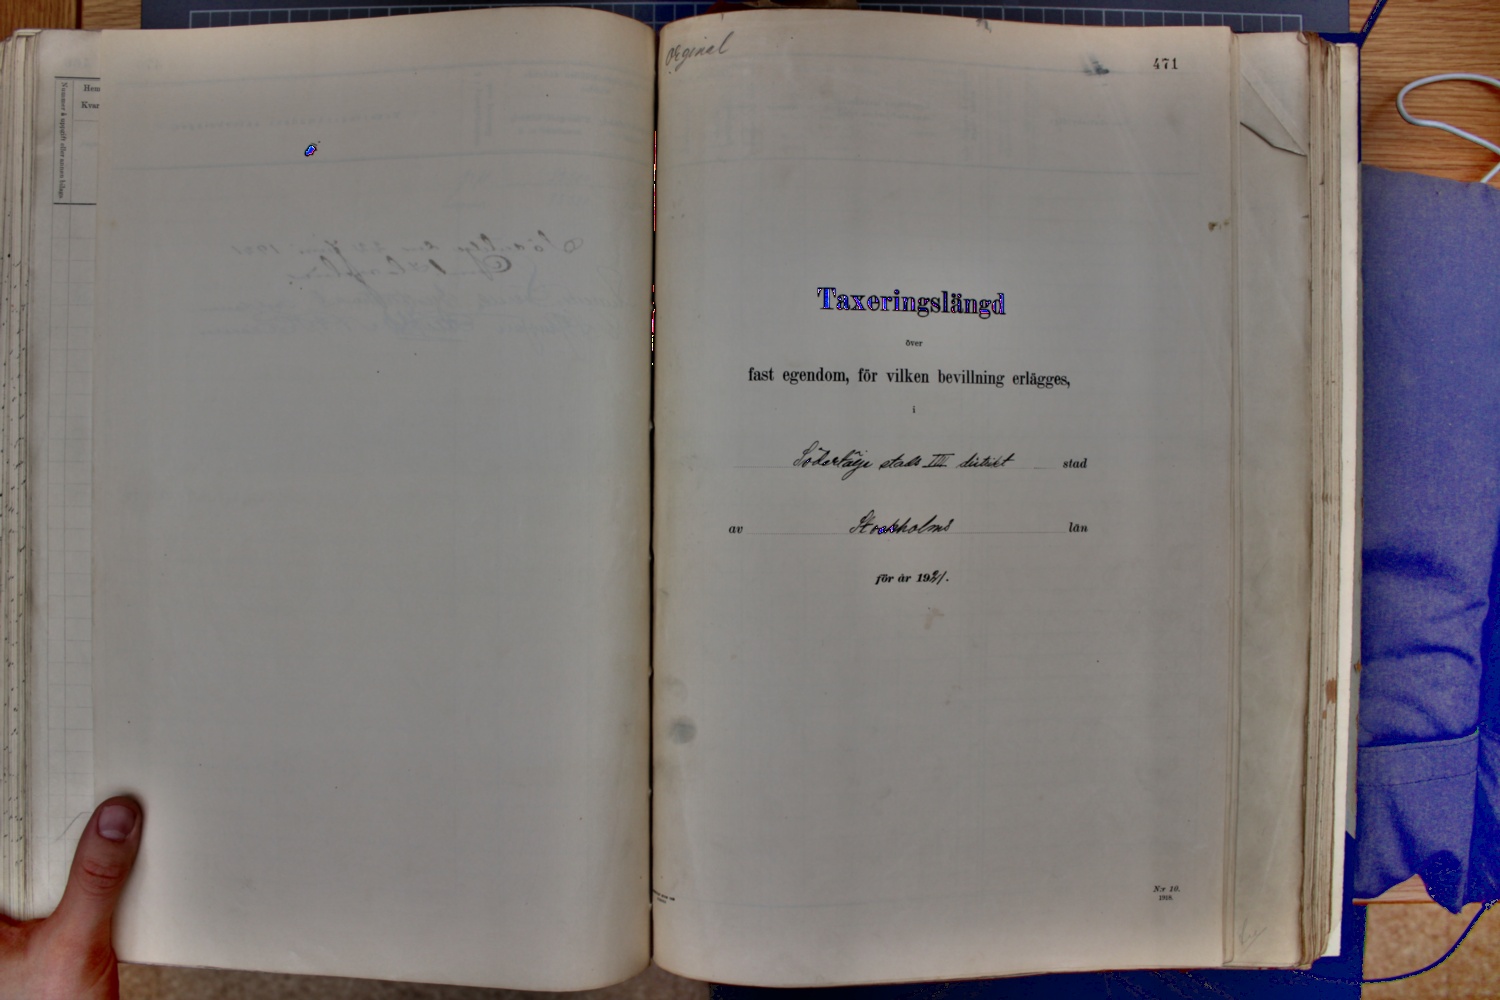 Nummer å uppgift eller annan bilaga.
Hem
Kvar
Orginal
471
Taxeringslängd
över
fast egendom, för vilken bevillning erlägges,
i
Södertälje stads III distrikt stad
av Stockholms län
för år 1921.
N:r 10.
1918.